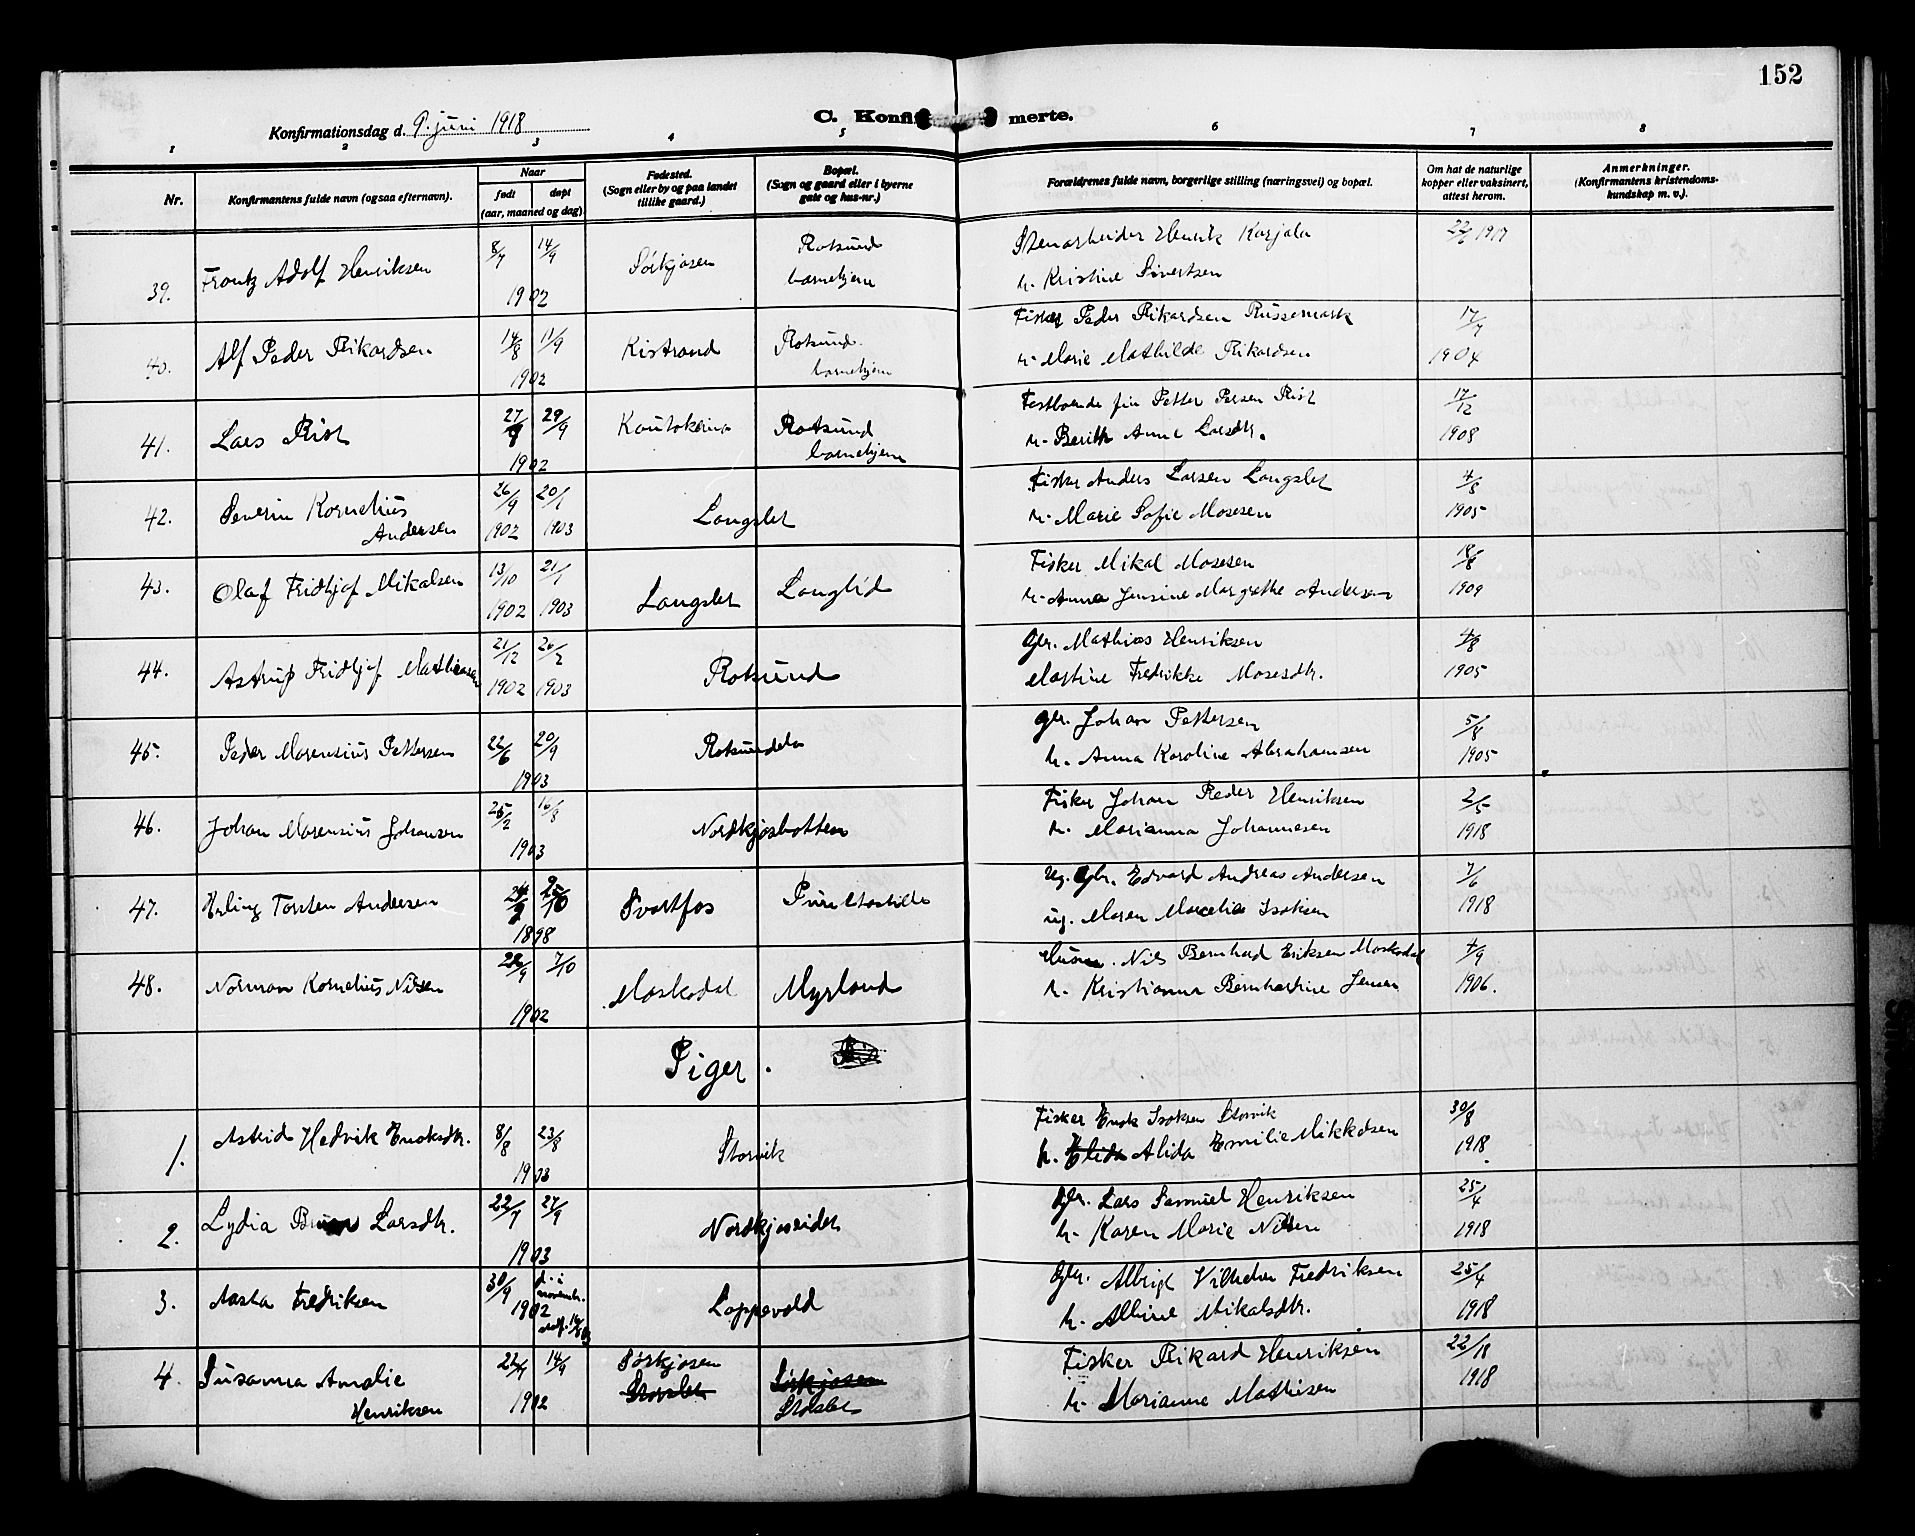 152
Konfirmationsdag d. 9. juni 1918
C. Konfirmerte.
1 2 3 4 5 6 7 8
Nr.
Konfirmantens fulde navn (ogsaa efternavn).
Naar
født
døpt
(aar, maaned og dag)
Fødested.
(Sogn eller by og paa landet
tillike gaard.)
Bopæl.
(Sogn og gaard eller i byerne
gate og hus-nr.)
Forældrenes fulde navn, borgerlige stilling (næringsvei) og bopæl.
Om hat de naturlige
kopper eller vaksinert,
attest herom.
Anmerkninger.
(Konfirmantens kristendoms-
kundskap m. v.).
39. Frantz Adolf Henriksen 8/7 14/9 1902 Sørkjosen Rotsund barnehjem
Stenarbeider Henrik Karjala
h. Kristine Sivertsen
22/6 1917
40. Alf Peder Rikardsen 14/8 11/9 1902 Kistrand Rotsund barnehjem
Fisker Peder Rikardsen Russemark
h. Marie Mathilde Rikardsen
17/7 1904
41. Lars Rist 27/9 29/9 1902 Kautokeino Rotsund barnehjem
Fastboende fin Petter Persen Rist
h. Berith Anne Larsdtr.
17/12 1908
42. Severin Kornelius
Andersen 26/9 1902 20/1 1903 Langslet
Fisker Anders Larsen Langslet
h. Marie Sofie Mosesen
4/8 1905
43. Olaf Fridtjof Mikalsen 13/10 1902 21/1 1903 Langslet Langlid
Fisker Mikal Mosesen
h. Anna Jensine Margrethe Andersen
18/8 1909
44. Astrup Fridtjof Mathiasen 21/12 1902 20/2 1903 Rotsund
Gbr. Mathias Henriksen
Mastine Fredrikke Mosesdtr.
4/8 1905
45. Peder Marensius Pettersen 22/6 20/9 1903 Rotsundelv
Gbr. Johan Pettersen
h. Anna Karoline Abrahamsen
5/8 1905
46. Johan Marensius Johansen 25/2 16/8 1903 Nordkjosbotten
Fisker Johan Peder Henriksen
h. Marianna Johannesen
2/5 1918
47. Erling Torsten Andersen 1898 Svartfos
ug. Gbr. Edvard Andreas Andersen
ug. Maren Marcelie Isaksen
7/6 1918
48. Norman Kornelius Nilsen 28/9 7/10 1902 Maskodal Myrland
Husm. Nils Bernhard Eriksen Maskodal
h. Kristianna Bernhartine Jensen
4/9 1906.
Piger.
1. Astrid Hedvik Enoksdtr. 8/8 23/8 1903 Storvik
Fisker Enok Isaksen Storvik
h. Elida Alida Emilie Mikkelsen
30/8 1918.
2. Lydia Larsdtr. 22/7 27/9 1903 Nordkjoseidet
Gbr. Lars Samuel Henriksen
h. Karen Marie Nilsen
25/4 1918
3. Aasta Fredriksen 30/9 1902 d. i novemb. Loppevold
Gbr. Albrigt Vilhelm Fredriksen
h. Albine Mikalsdtr.
25/4 1918
4. Susanna Amalie
Henriksen 22/7 14/9 1902 Sørkjosen Storslet Sørkjosen Storslet
Fisker Rikard Henriksen
h. Marianne Mathisen
22/18 1918